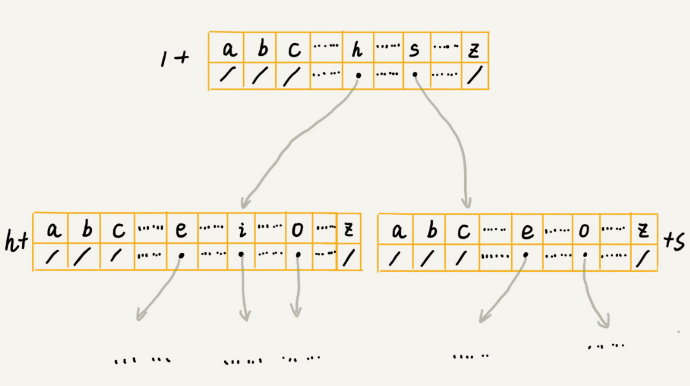 /+ a b c ...... h ...... s ...... z
/ / / ...... • ...... • ...... /
h+ a b c ...... e ...... i ...... o ...... z
/ / / ...... • ...... • ...... • ...... /
a b c ...... e ...... o ...... z +s
/ / / ...... • ...... • ...... /
...... ...... ......
...... ......